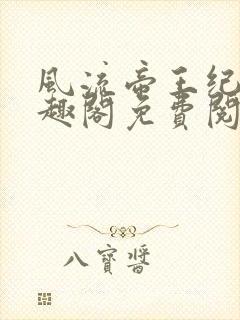 風流帝王紀
趣閣免費閱
八寶醬